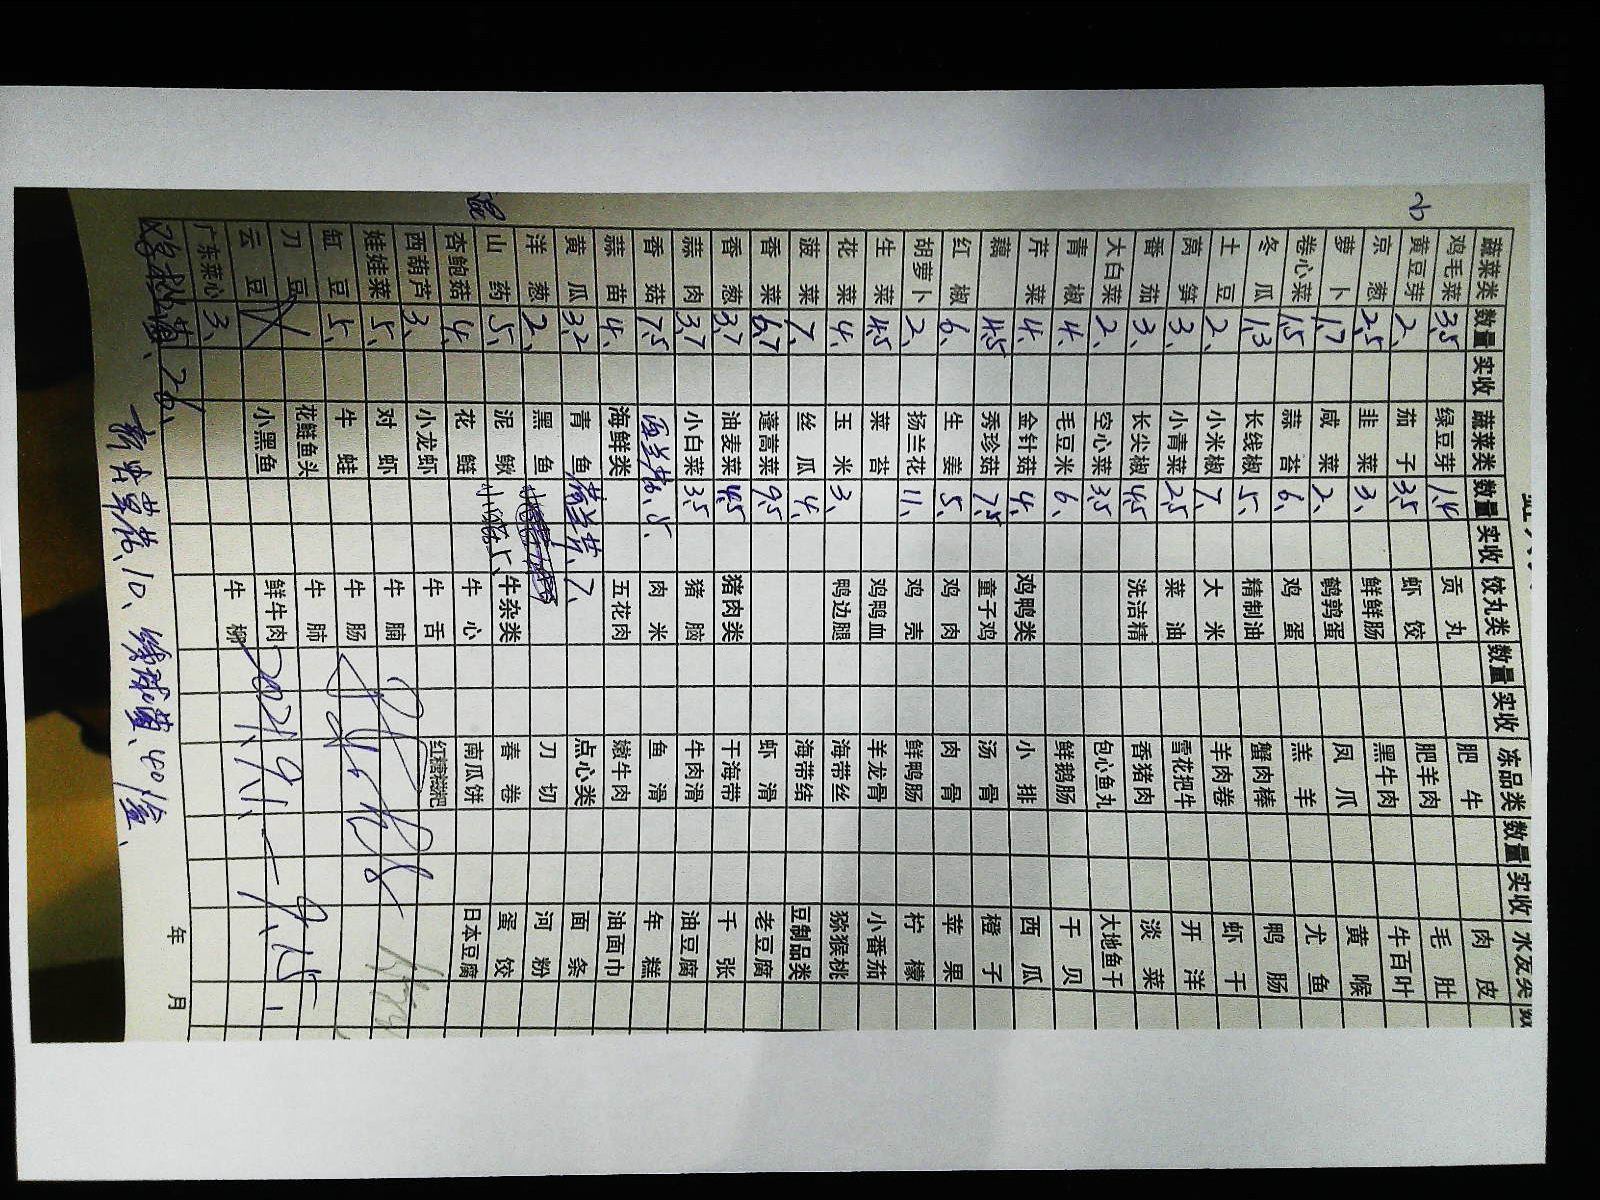 蔬菜类 数量 实收 蔬菜类 数量 实收 饺丸类 数量 实收 冻品类 数量 实收 水发类
鸡毛菜 3.5 绿豆芽 1.4 贡丸 肥牛 肉皮
黄豆芽 2、 茄子 3.5 虾饺 肥羊肉 毛肚
京葱 2.5 韭菜 3、 鲜鲜肠 黑牛肉 牛百叶
萝卜 1.7 咸菜 2、 鹌鹑蛋 凤爪 黄喉
卷心菜 1.5 蒜苔 6、 鸡蛋 羔羊 尤鱼
冬瓜 1.3 长线椒 5、 精制油 蟹肉棒 鸭肠
土豆 2、 小米椒 7、 大米 羊肉卷 虾干
莴笋 3、 小青菜 2.5 菜油 雪花把牛 开洋
番茄 3、 长尖椒 4.5 洗洁精 香猪肉 淡菜
大白菜 2、 空心菜 3.5 包心鱼丸 大地鱼干
青椒 4、 毛豆米 6、 鲜鹅肠 干贝
芹菜 4、 金针菇 4、 鸡鸭类 小排 西瓜
藕 4.5 秀珍菇 7.5 童子鸡 汤骨 橙子
红椒 6、 生姜 5、 鸡肉 肉骨 苹果
胡萝卜 2、 扬兰花 11、 鸡壳 鲜鸭肠 柠檬
生菜 4.5 菜苔 鸡鸭血 羊龙骨 小番茄
花菜 4、 玉米 3、 鸭边腿 海带丝 猕猴桃
菠菜 7、 丝瓜 4、 海带结 豆制品类
香菜 6.7 蓬蒿菜 9.5 虾滑 老豆腐
香葱 3.7 油麦菜 4.5 猪肉类 干海带 千张
蒜肉 3.7 小白菜 3.5 猪脑 牛肉滑 油豆腐
香菇 7.5 肉米 鱼滑 年糕
蒜苗 4、 海鲜类 五花肉 嫩牛肉 油面巾
黄瓜 3.2 青鱼 7、 点心类 面条
洋葱 2、 黑鱼 刀切 河粉
山药 5、 泥鳅 5、 牛杂类 春卷 蛋饺
杏鲍菇 4、 花鲢 牛心 南瓜饼 日本豆腐
西葫芦 3、 小龙虾 牛舌 红糖糍粑
娃娃菜 5、 对虾 牛腩
缸豆 5、 牛蛙 牛肠
刀豆 花鲢鱼头 牛肺
云豆 小黑鱼 鲜牛肉
广东菜心 3、 牛柳
2021、9、1、— 9、15、
26、
10、
40/盒、
年 月